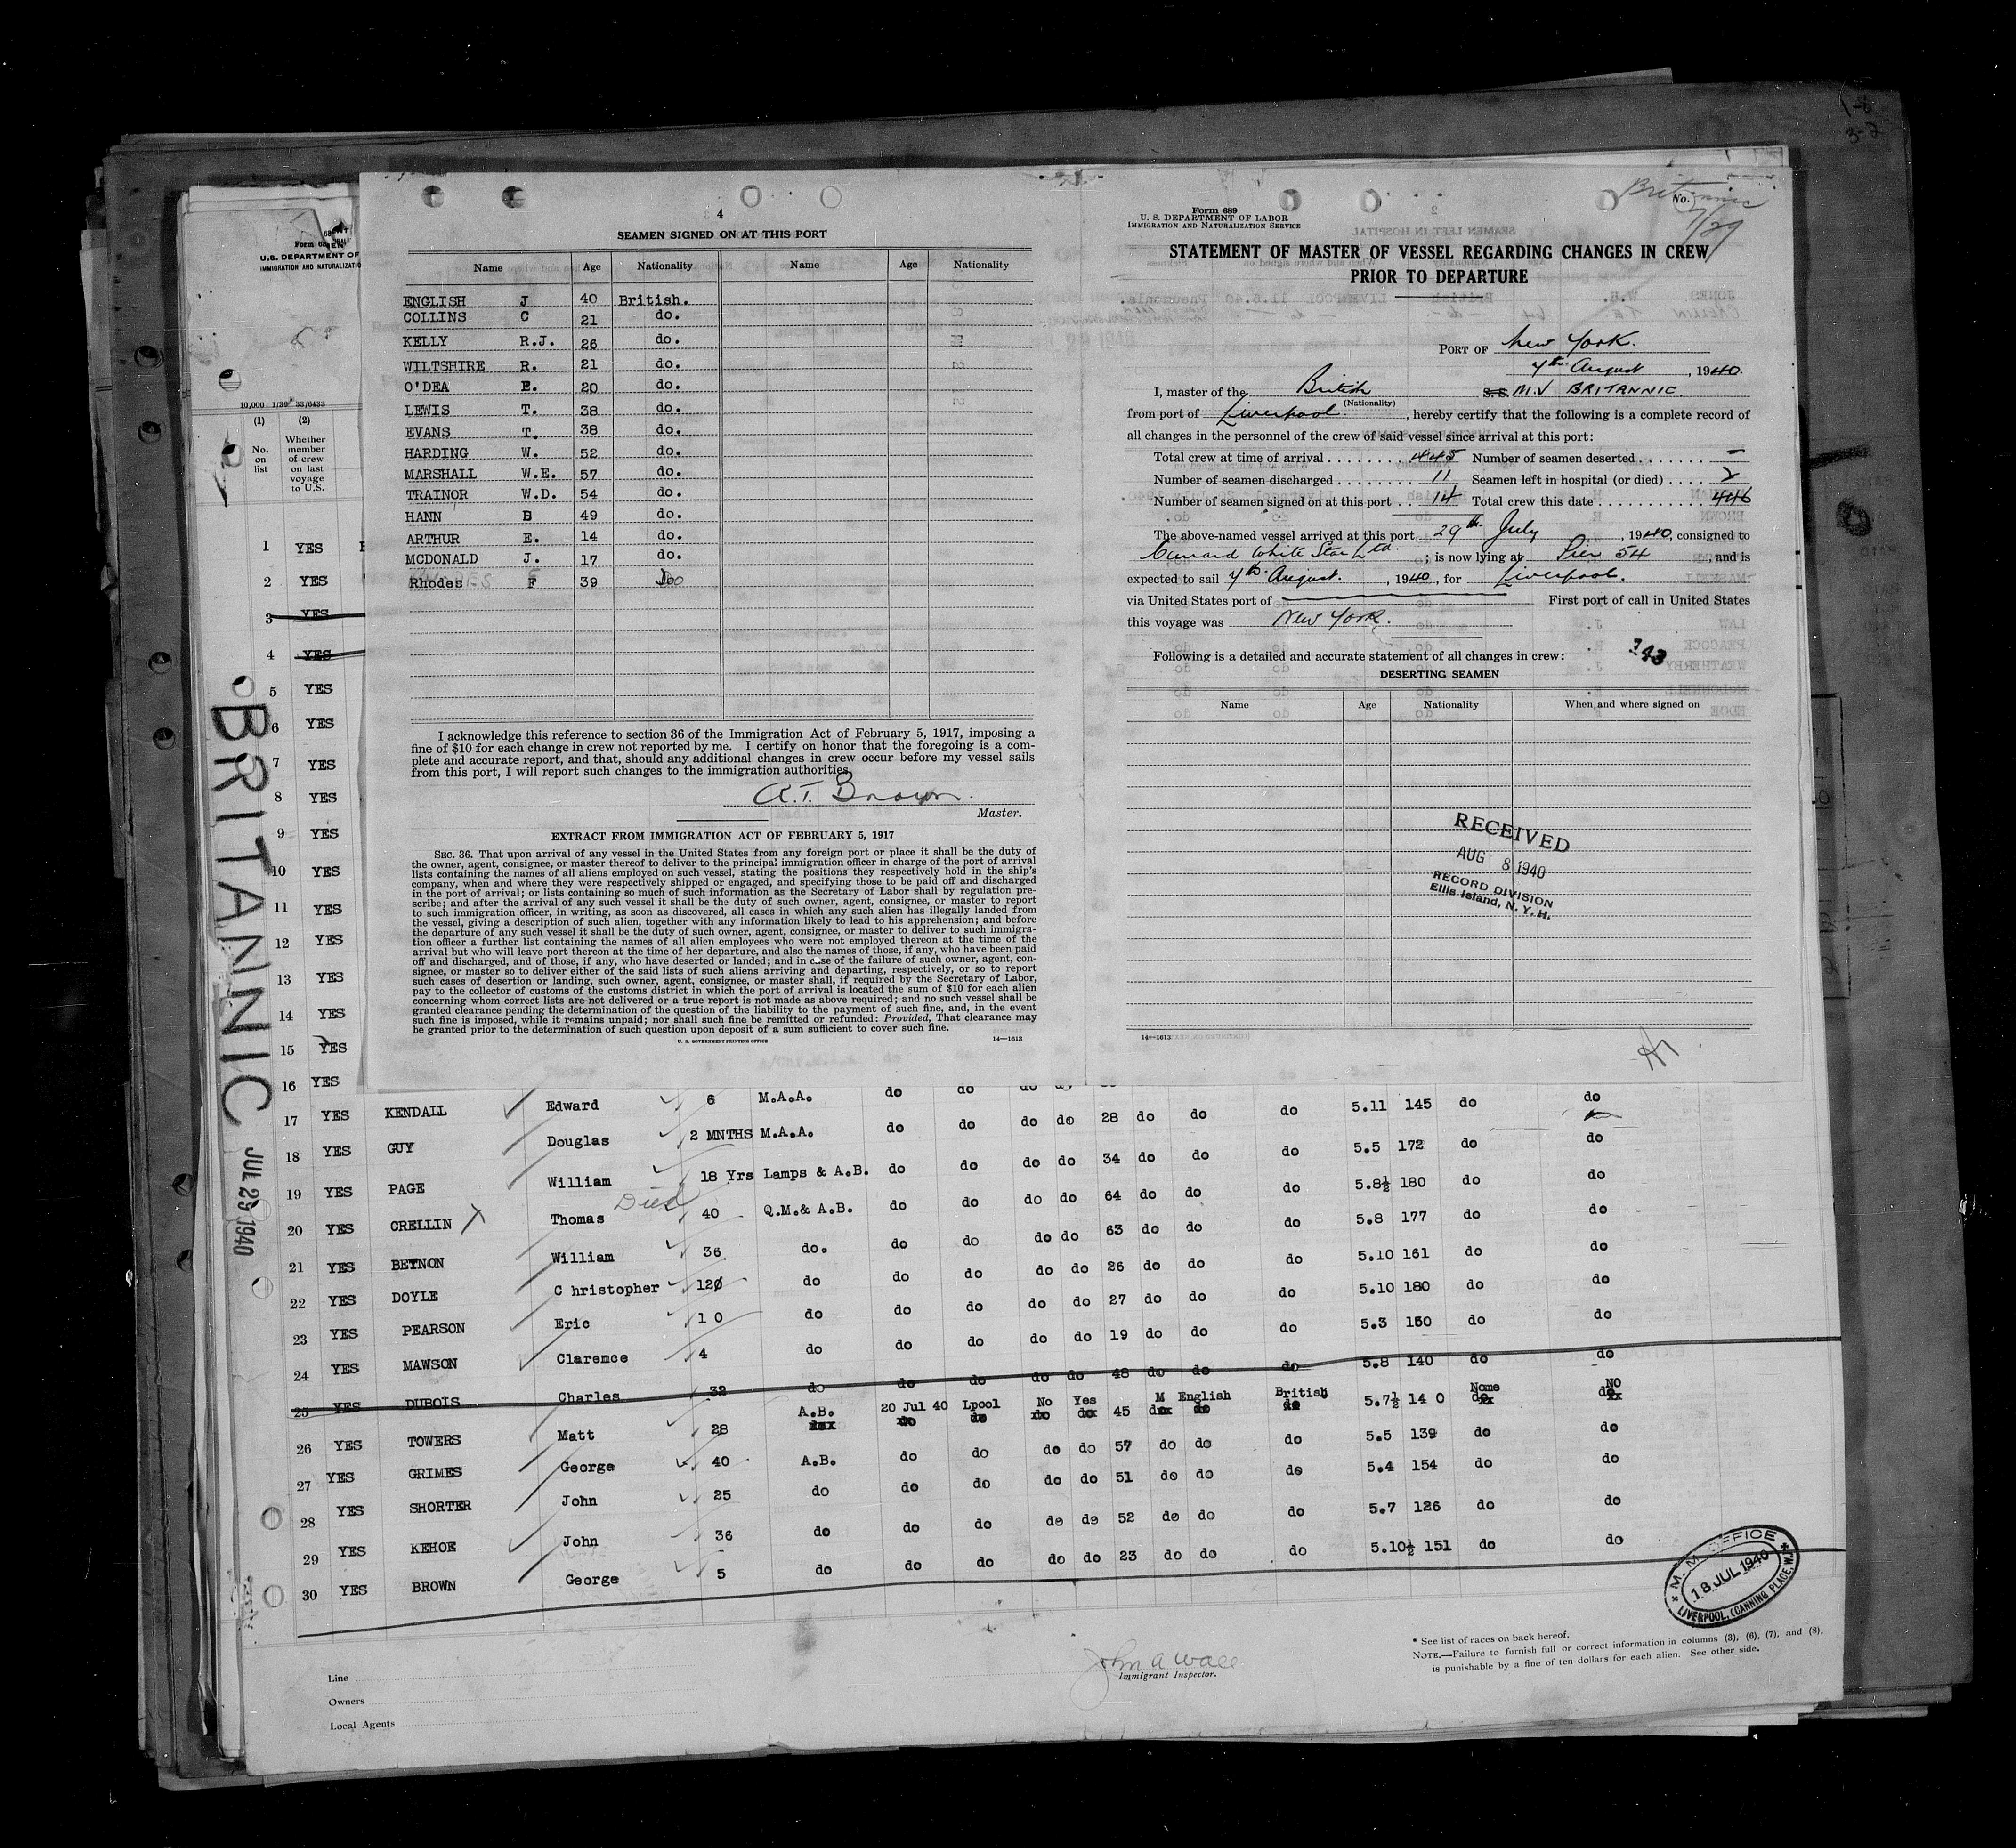 1-6
3-2
Form 689
U. S. DEPARTMENT OF
IMMIGRATION AND NATURALIZATIO
10,000 1/39 33/6433
(1) (2)
No. on list
Whether member of crew on last voyage to U.S.
1 YES
2 YES
3 YES
4 YES
5 YES
6 YES
7 YES
8 YES
9 YES
10 YES
11 YES
12 YES
13 YES
14 YES
15 YES
16 YES
BRITANNIC
JUL 29 1940
4
SEAMEN SIGNED ON AT THIS PORT
Name Age Nationality Name Age Nationality
ENGLISH J 40 British.
COLLINS C 21 do.
KELLY R.J. 26 do.
WILTSHIRE R. 21 do.
O'DEA P. 20 do.
LEWIS T. 38 do.
EVANS T. 38 do.
HARDING W. 52 do.
MARSHALL W.E. 57 do.
TRAINOR W.D. 54 do.
HANN B 49 do.
ARTHUR E. 14 do.
MCDONALD J. 17 do.
Rhodes F 39 Do
I acknowledge this reference to section 36 of the Immigration Act of February 5, 1917, imposing a
fine of $10 for each change in crew not reported by me. I certify on honor that the foregoing is a com-
plete and accurate report, and that, should any additional changes in crew occur before my vessel sails
from this port, I will report such changes to the immigration authorities.
A.T. Brown.
Master.
EXTRACT FROM IMMIGRATION ACT OF FEBRUARY 5, 1917
SEC. 36. That upon arrival of any vessel in the United States from any foreign port or place it shall be the duty of
the owner, agent, consignee, or master thereof to deliver to the principal immigration officer in charge of the port of arrival
lists containing the names of all aliens employed on such vessel, stating the positions they respectively hold in the ship's
company, when and where they were respectively shipped or engaged, and specifying those to be paid off and discharged
in the port of arrival; or lists containing so much of such information as the Secretary of Labor shall by regulation pre-
scribe; and after the arrival of any such vessel it shall be the duty of such owner, agent, consignee, or master to report
to such immigration officer, in writing, as soon as discovered, all cases in which any such alien has illegally landed from
the vessel, giving a description of such alien, together with any information likely to lead to his apprehension; and before
the departure of any such vessel it shall be the duty of such owner, agent, consignee, or master to deliver to such immigra-
tion officer a further list containing the names of all alien employees who were not employed thereon at the time of the
arrival but who will leave port thereon at the time of her departure, and also the names of those, if any, who have been paid
off and discharged, and of those, if any, who have deserted or landed; and in case of the failure of such owner, agent, con-
signee, or master so to deliver either of the said lists of such aliens arriving and departing, respectively, or so to report
such cases of desertion or landing, such owner, agent, consignee, or master shall, if required by the Secretary of Labor,
pay to the collector of customs of the customs district in which the port of arrival is located the sum of $10 for each alien
concerning whom correct lists are not delivered or a true report is not made as above required; and no such vessel shall be
granted clearance pending the determination of the question of the liability to the payment of such fine, and, in the event
such fine is imposed, while it remains unpaid; nor shall such fine be remitted or refunded: Provided, That clearance may
be granted prior to the determination of such question upon deposit of a sum sufficient to cover such fine.
U. S. GOVERNMENT PRINTING OFFICE 14—1613
Form 689
U. S. DEPARTMENT OF LABOR
IMMIGRATION AND NATURALIZATION SERVICE
No.
Britannic
7/29
STATEMENT OF MASTER OF VESSEL REGARDING CHANGES IN CREW
PRIOR TO DEPARTURE
PORT OF New York.
4th August, 1940.
I, master of the British S.S. M.V BRITANNIC.
(Nationality)
from port of Liverpool., hereby certify that the following is a complete record of
all changes in the personnel of the crew of said vessel since arrival at this port:
Total crew at time of arrival . . . . . . . 445 Number of seamen deserted . . . . . . . –
Number of seamen discharged . . . . . . . 11 Seamen left in hospital (or died) . . . . 2
Number of seamen signed on at this port . . 14 Total crew this date . . . . . . . . . . 446
The above-named vessel arrived at this port 29th July, 1940, consigned to
Cunard White Star Ltd.; is now lying at Pier 54, and is
expected to sail 4th August., 1940, for Liverpool.
via United States port of First port of call in United States
this voyage was New York.
Following is a detailed and accurate statement of all changes in crew:
DESERTING SEAMEN
Name Age Nationality When and where signed on
RECEIVED
AUG 8 1940
RECORD DIVISION
Ellis Island, N. Y. H.
14—1613
17 YES KENDALL Edward 6 M.A.A. do do do do 28 do do do 5.11 145 do do
18 YES GUY Douglas 2 MNTHS M.A.A. do do do do 34 do do do 5.5 172 do do
19 YES PAGE William 18 Yrs Lamps & A.B. do do do do 64 do do do 5.8½ 180 do do
Died
20 YES CRELLIN X Thomas 40 Q.M.& A.B. do do do do 63 do do do 5.8 177 do do
21 YES BETNON William 36 do. do do do do 26 do do do 5.10 161 do do
22 YES DOYLE C hristopher 120 do do do do do 27 do do do 5.10 180 do do
23 YES PEARSON Eric 10 do do do do do 19 do do do 5.3 150 do do
24 YES MAWSON Clarence 4 do do do do do 48 do do do 5.8 140 do do
25 YES DUBOIS Charles 32 do A.B. 20 Jul 40 Lpool No Yes 45 M English British 5.7½ 14 0 None NO
26 YES TOWERS Matt 28 do do do do do 57 do do do 5.5 139 do do
27 YES GRIMES George 40 A.B. do do do do 51 do do do 5.4 154 do do
28 YES SHORTER John 25 do do do do do 52 do do do 5.7 126 do do
29 YES KEHOE John 36 do do do do do 23 do do do 5.10½ 151 do do
30 YES BROWN George 5 do
M. M. OFFICE
18 JUL 1940
LIVERPOOL, (CANNING PLACE, W.)
John A Wall
Immigrant Inspector.
Line
Owners
Local Agents
* See list of races on back hereof.
NOTE.—Failure to furnish full or correct information in columns (3), (6), (7), and (8),
is punishable by a fine of ten dollars for each alien. See other side.